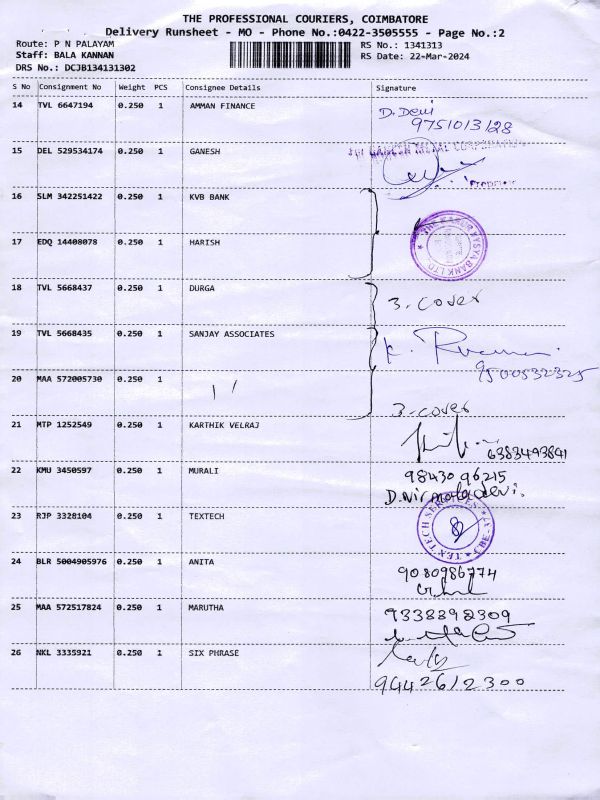 THE PROFESSIONAL COURIERS, COIMBATORE
Delivery Runsheet - MO - Phone No.:0422-3505555 - Page No.:2
Route: P N PALAYAM
Staff: BALA KANNAN
DRS No.: DCJB134131302
RS No.: 1341313
RS Date: 22-Mar-2024
S No Consignment No Weight PCS Consignee Details Signature
14 TVL 6647194 0.250 1 AMMAN FINANCE
D. Devi
9751013128
15 DEL 529534174 0.250 1 GANESH
16 SLM 342251422 0.250 1 KVB BANK
17 EDQ 14408078 0.250 1 HARISH
18 TVL 5668437 0.250 1 DURGA
3. cover
19 TVL 5668435 0.250 1 SANJAY ASSOCIATES
9500532325
20 MAA 572005730 0.250 1 ''
3. cover
21 MTP 1252549 0.250 1 KARTHIK VELRAJ
6383493841
22 KMU 3450597 0.250 1 MURALI
98430 96215
D. Nirmala devi.
23 RJP 3328104 0.250 1 TEXTECH
24 BLR 5004905976 0.250 1 ANITA
9080986774
25 MAA 572517824 0.250 1 MARUTHA
9338892309
26 NKL 3335921 0.250 1 SIX PHRASE
9442612300